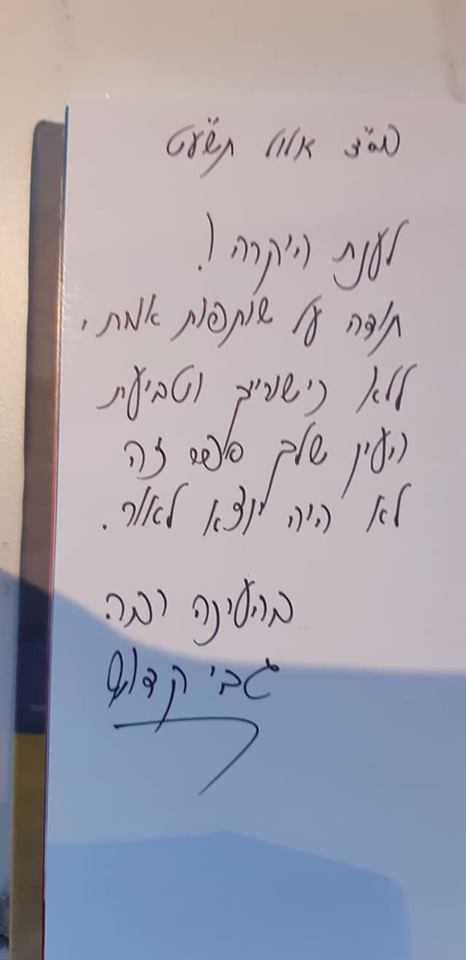 בס"ד אלול תשע"ט
לענת היקרה!
תודה על שותפות אמת,
ללא כישוריך וטביעת
העין שלך ספר זה
לא היה יוצא לאור.
בהערכה רבה
גבי קדוש